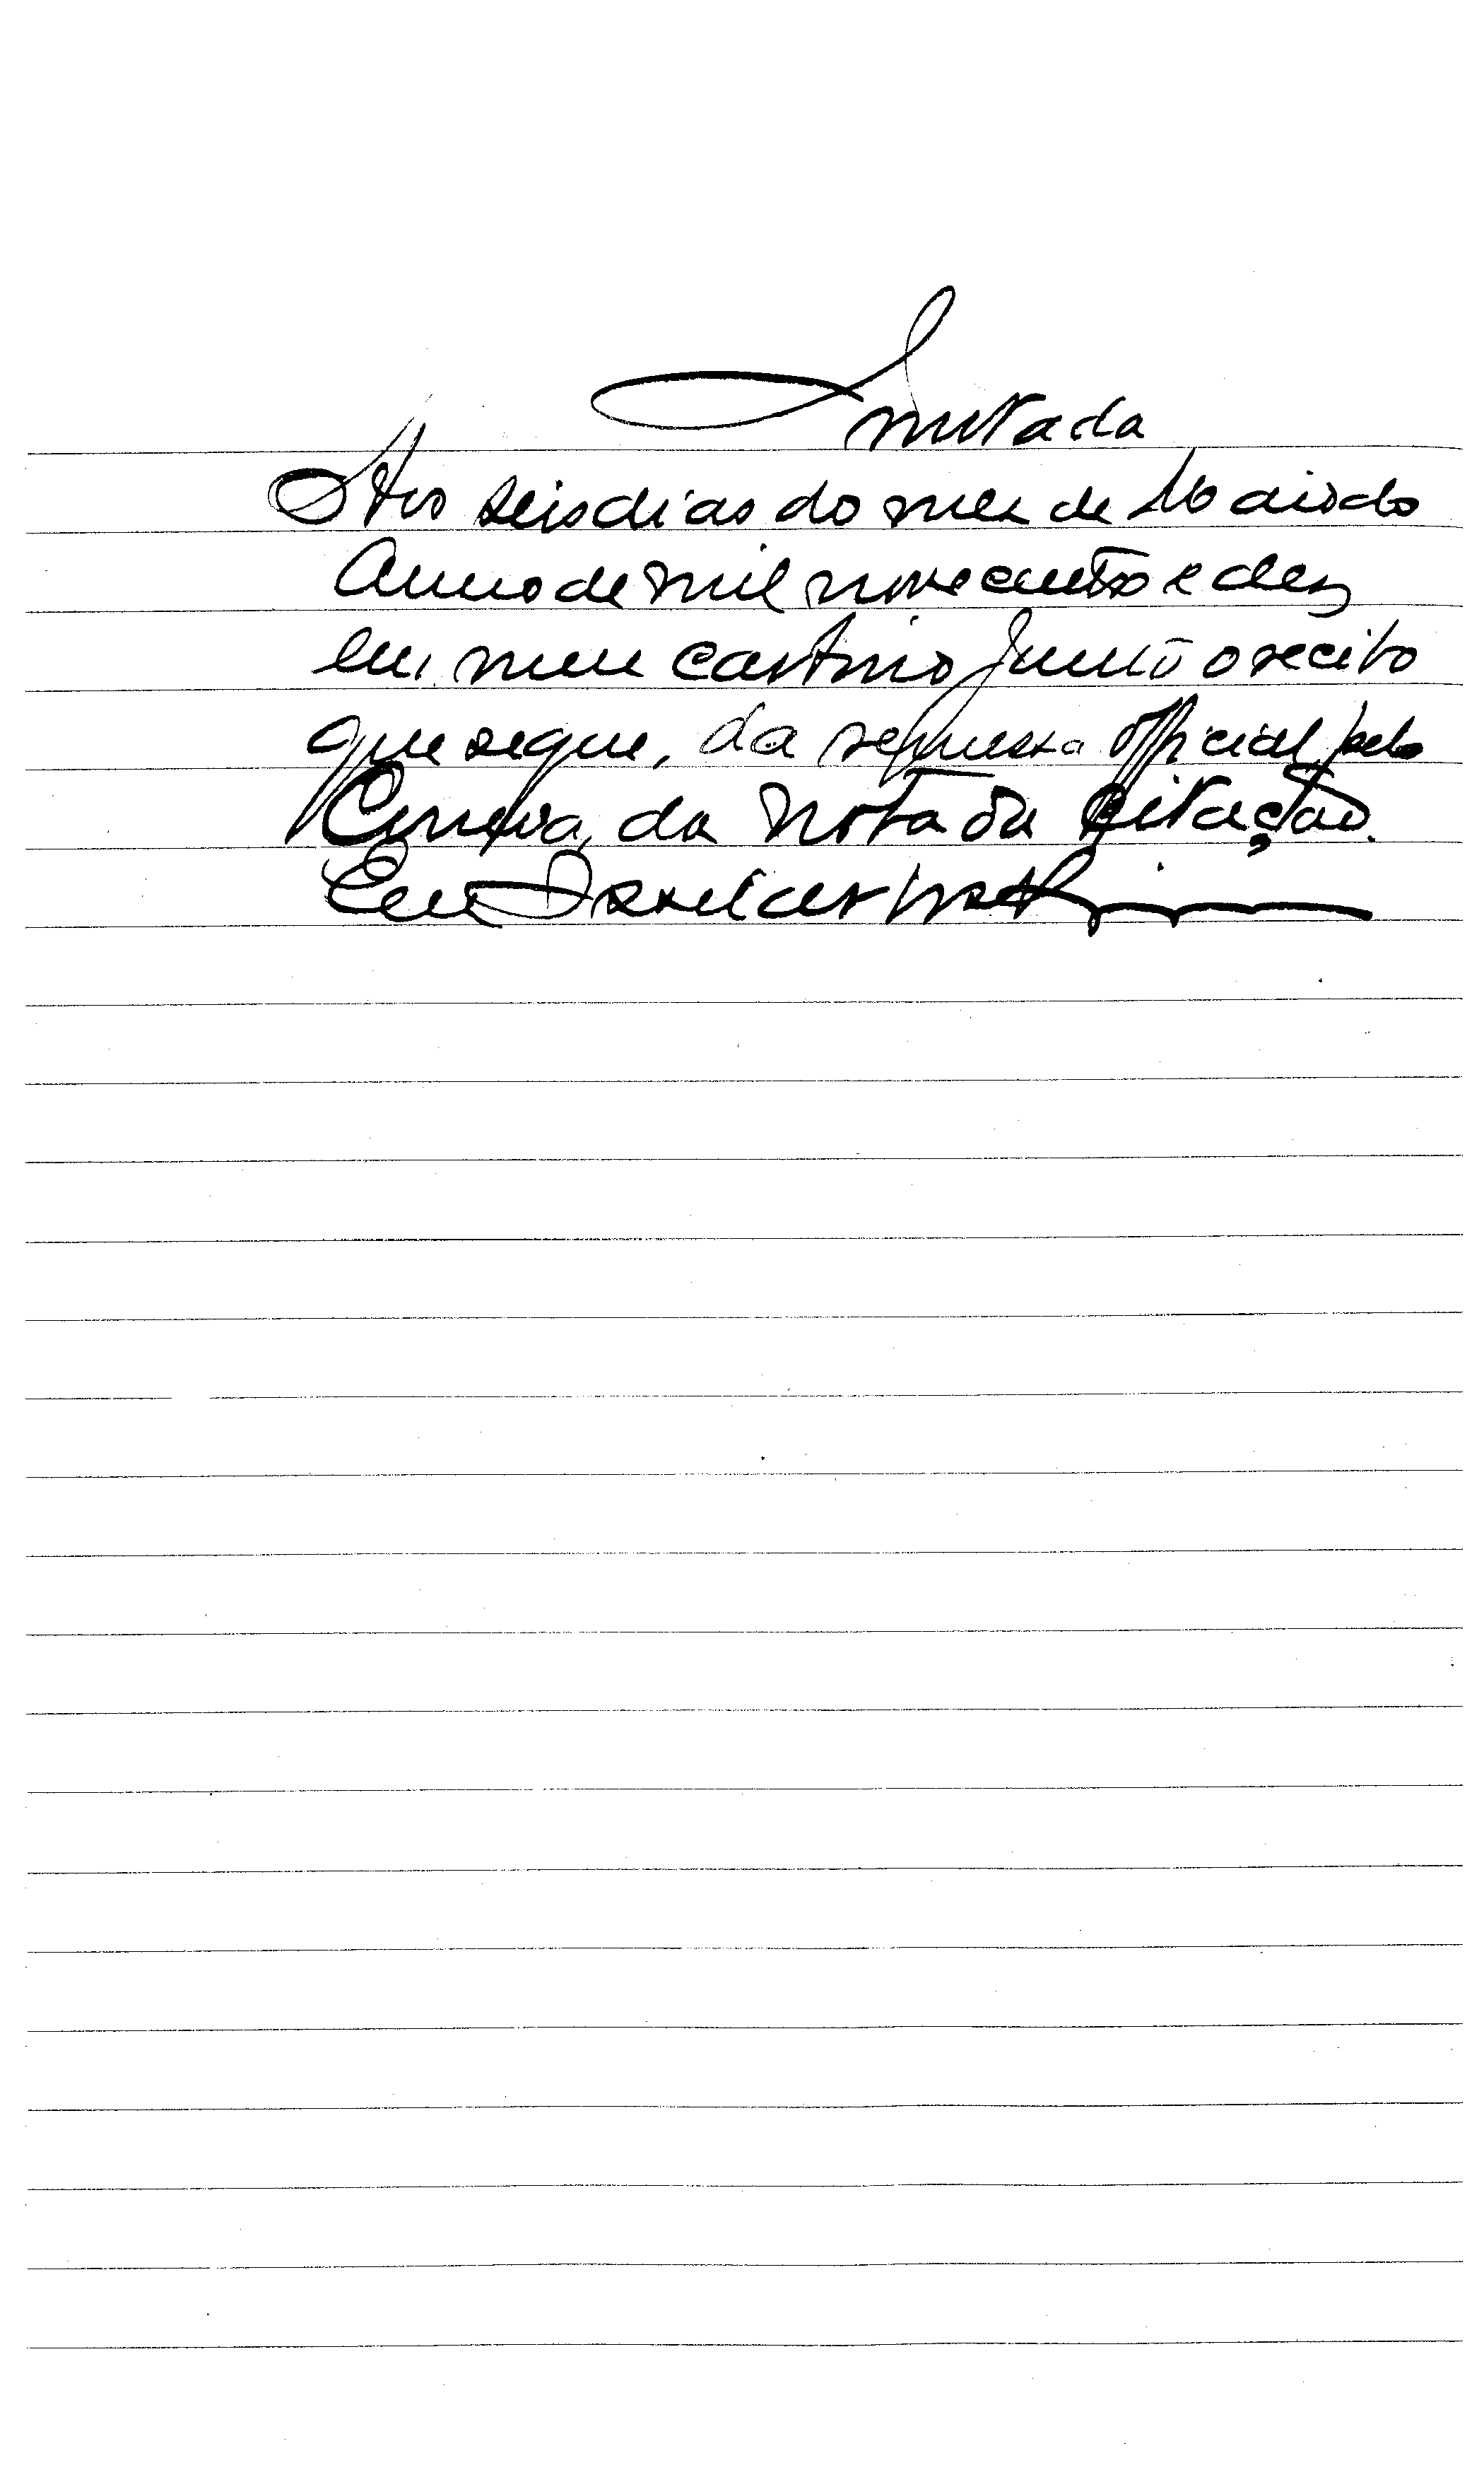 Juntada
Aos seis dias do mez de Maio do
Anno de mil novecentos e dez
em meu cartorio junto o recibo
que segue, da remessa official pelo
da nota da citação.
Eu